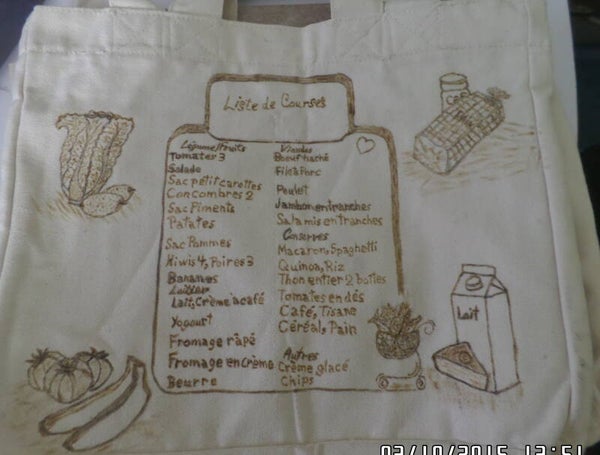 Liste de Courses
Légume/fruits
Tomates 3
Salade
Sac petit carottes
Concombres 2
Sac Piments
Patates
Sac Pommes
Kiwis 4, Poires 3
Bananes
Lait, Crème à café
Yogourt
Fromage râpé
Fromage en crème
Beurre
Viandes
Boeuf haché
Filé Porc
Poulet
Jambon en tranches
Salamis en tranches
Conserves
Macaron, Spaghetti
Quinoa, Riz
Thon entier 2 boîtes
Tomates en dés
Café, Tisane
Céréal, Pain
Autres
Crème glacé
Chips
Lait